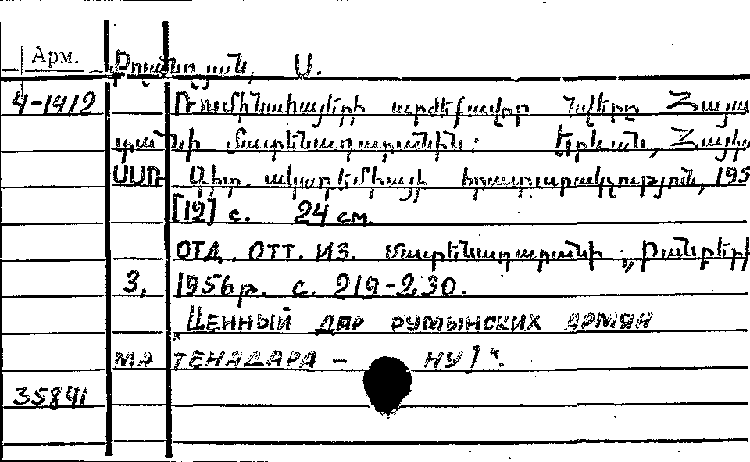 Арм.
Ս.
4-1412 Ռումինահայերի արժեքավոր նվերը Հայաս
տանի մատենադարանին: Երևան, Հայկ
ՍՍՌ Գիտ. ակադեմիայի հրատարակչություն, 195
[12] с. 24 см.
ОТД. ОТТ. ИЗ. մատենադարանի „Բանբերի
3, 1956թ. с. 219-230.
ЦЕННЫЙ ДАР РУМЫНСКИХ АРМЯН
МАТЕНАДАРА- НУ]".
35841